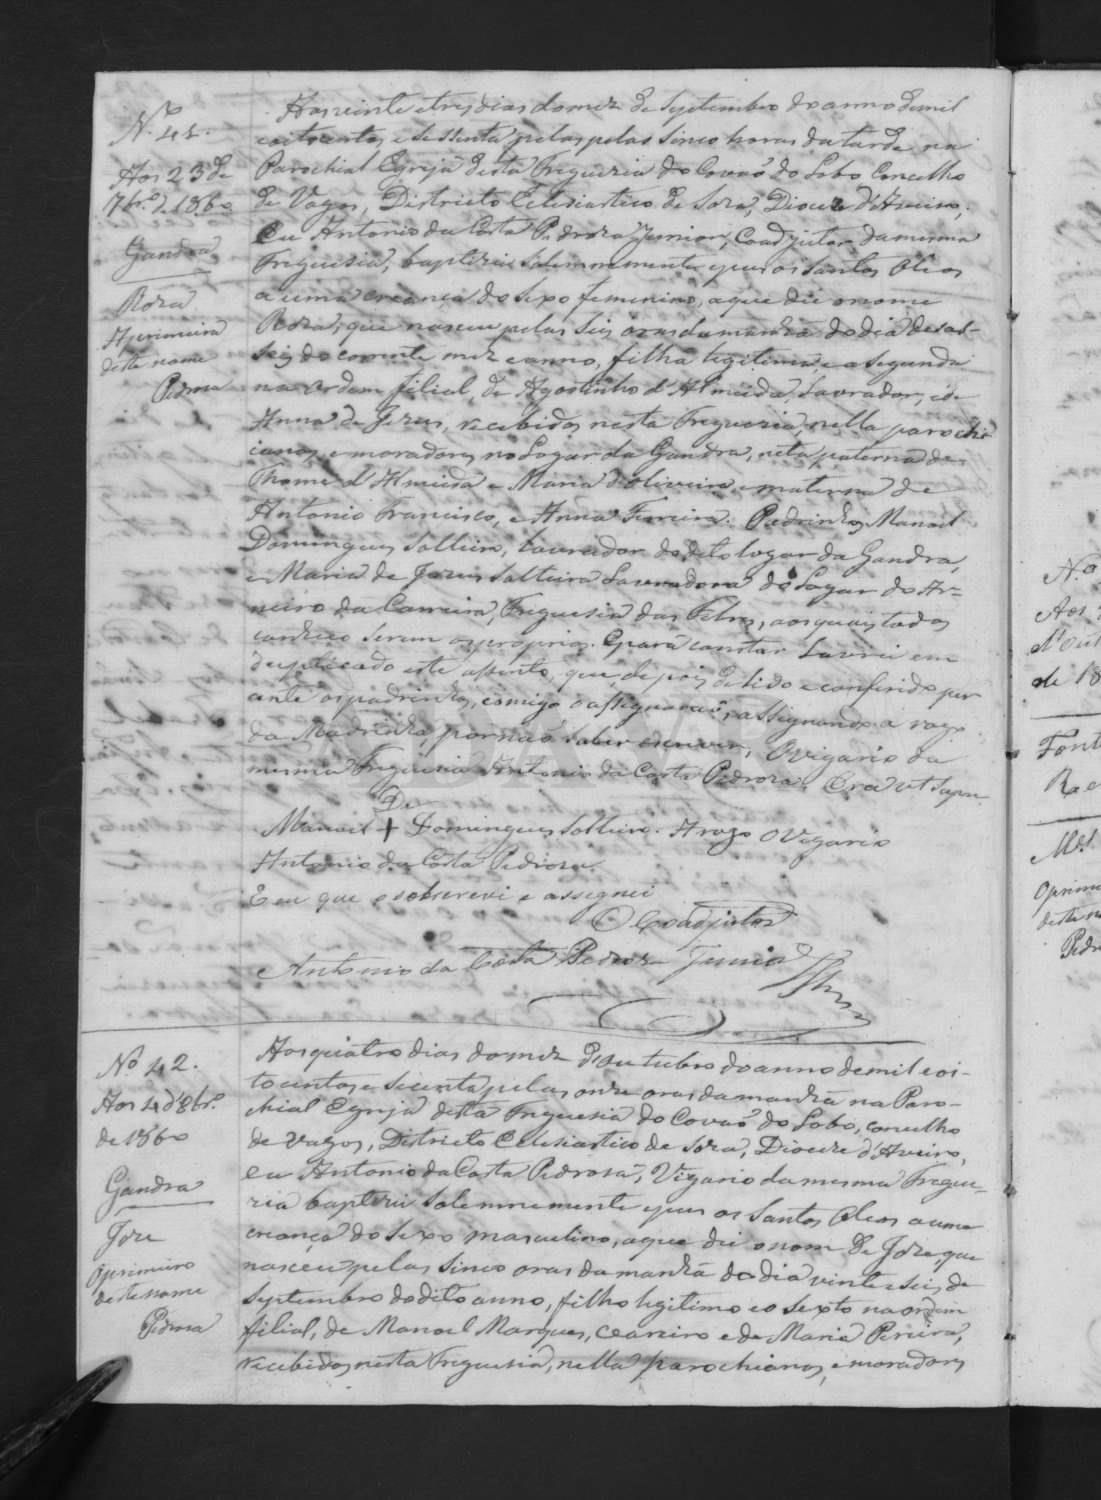 N.º 41.
Aos 23 de
7br.º de 1860
Gandra
Roza
A primeira
deste nome
Pedroza
Aos vinte e tres dias do mez de Septembro do anno de mil
oitocentos e sessenta pelas pelas sinco horas da tarde na
Parochial Egreja desta Freguezia do Covaõ do Lobo Concelho
de Vagos, Districto Eclesiastico de Soza, Diocese d'Aveiro,
Eu Antonio da Costa Pedroza Junior, Coadjutor da mesma
Freguesia, baptizei solemnemente e pus os Santos Oleos
a uma creança do sexo femenino, a que dei o nome
Roza, que nasceu pelas seis oras da manhã do dia desas-
seis do corrente mez e anno, filha legitima e a segunda
na ordem filial, de Agostinho d'Almeida, Lavrador, e de
Anna de Jezus, recebidos nesta Freguezia, nella parochi
ianos, e moradores no Logar da Gandra, neta paterna de
Thome d'Almeida e Maria d'Oliveira e materna de
Antonio Francisco, e Anna Ferreira. Padrinhos Manoel
Domingues Solteiro, Lavrador do dito logar da Gandra,
e Maria de Jezus Solteira Lavradora do Logar do Ar-
neiro da Carreira, Freguesia das Febres, aos quais todos
conheço serem os proprios. E para constar Lavrei em
duplicado este assento, que, depois de lido e conferido per
ante os padrinhos, comigo o assignaraõ, assignando a rogo
da Madrinha, por naõ saber escrever, O Vigario da
mesma Freguesia Antonio da Costa Pedroza. Era ut supra
De
Manoel + Domingues Solteiro. A rogo O Vigario
Antonio da Costa Pedroza.
E eu que o sobscrevi e assignei
O Coadjutor
Antonio da Costa Pedroza Junior
Nº 42.
Aos 4 d'8br.º
de 1860
Gandra
Joze
O primeiro
deste nome
Pedroza
Aos quatro dias do mez de Outubro do anno de mil e oi-
tocentos e secenta pelas onze oras da manhã na Paro-
chial Egreja desta Freguesia do Covaõ do Lobo, concelho
de Vagos, Districto Eclesiastico de Soza, Diocese d'Aveiro,
Eu Antonio da Costa Pedroza, Vigario da mesma Fregue-
zia baptizei solemnemente e pus os Santos Oleos a uma
creança do sexo masculino, a que dei o nome de Joze que
nasceu pelas sinco oras da manhã do dia vinte e seis de
Septembro do dito anno, filho legitimo e o sexto na ordem
filial, de Manoel Marques, Ceareiro e de Maria Pereira,
recebidos nesta Freguesia, nella parochianos, e moradores
N.º
Aos
de 18
Font